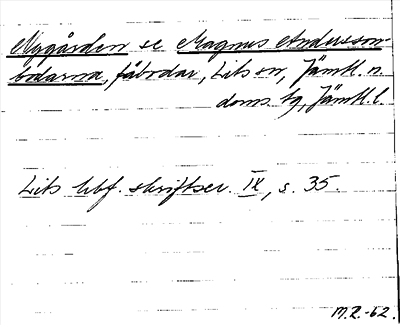 Nygården se Magnus Andersson-
bodarna, fäbodar, Lits sn, Jämtl. n.
doms. tg, Jämtl. l.
Lits hbf. skriftser. IX, s. 35.
M.R.-62.